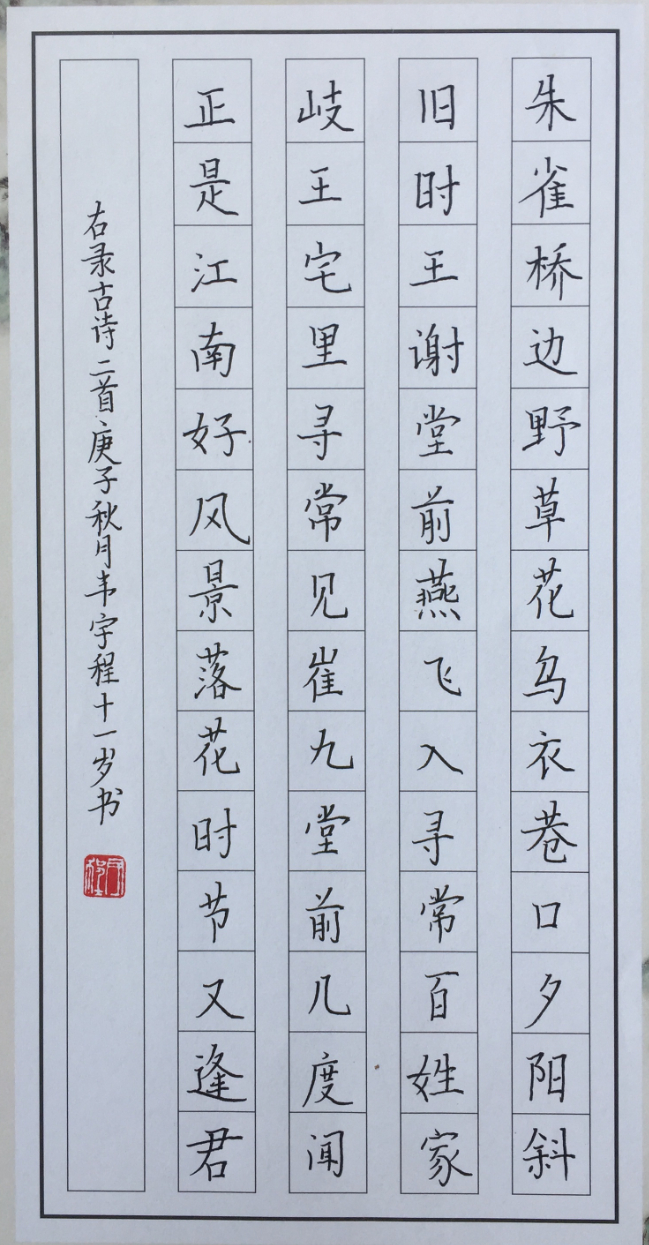 朱雀桥边野草花乌衣巷口夕阳斜
旧时王谢堂前燕飞入寻常百姓家
岐王宅里寻常见崔九堂前几度闻
正是江南好风景落花时节又逢君
右录古诗二首庚子秋月韦宇程十一岁书